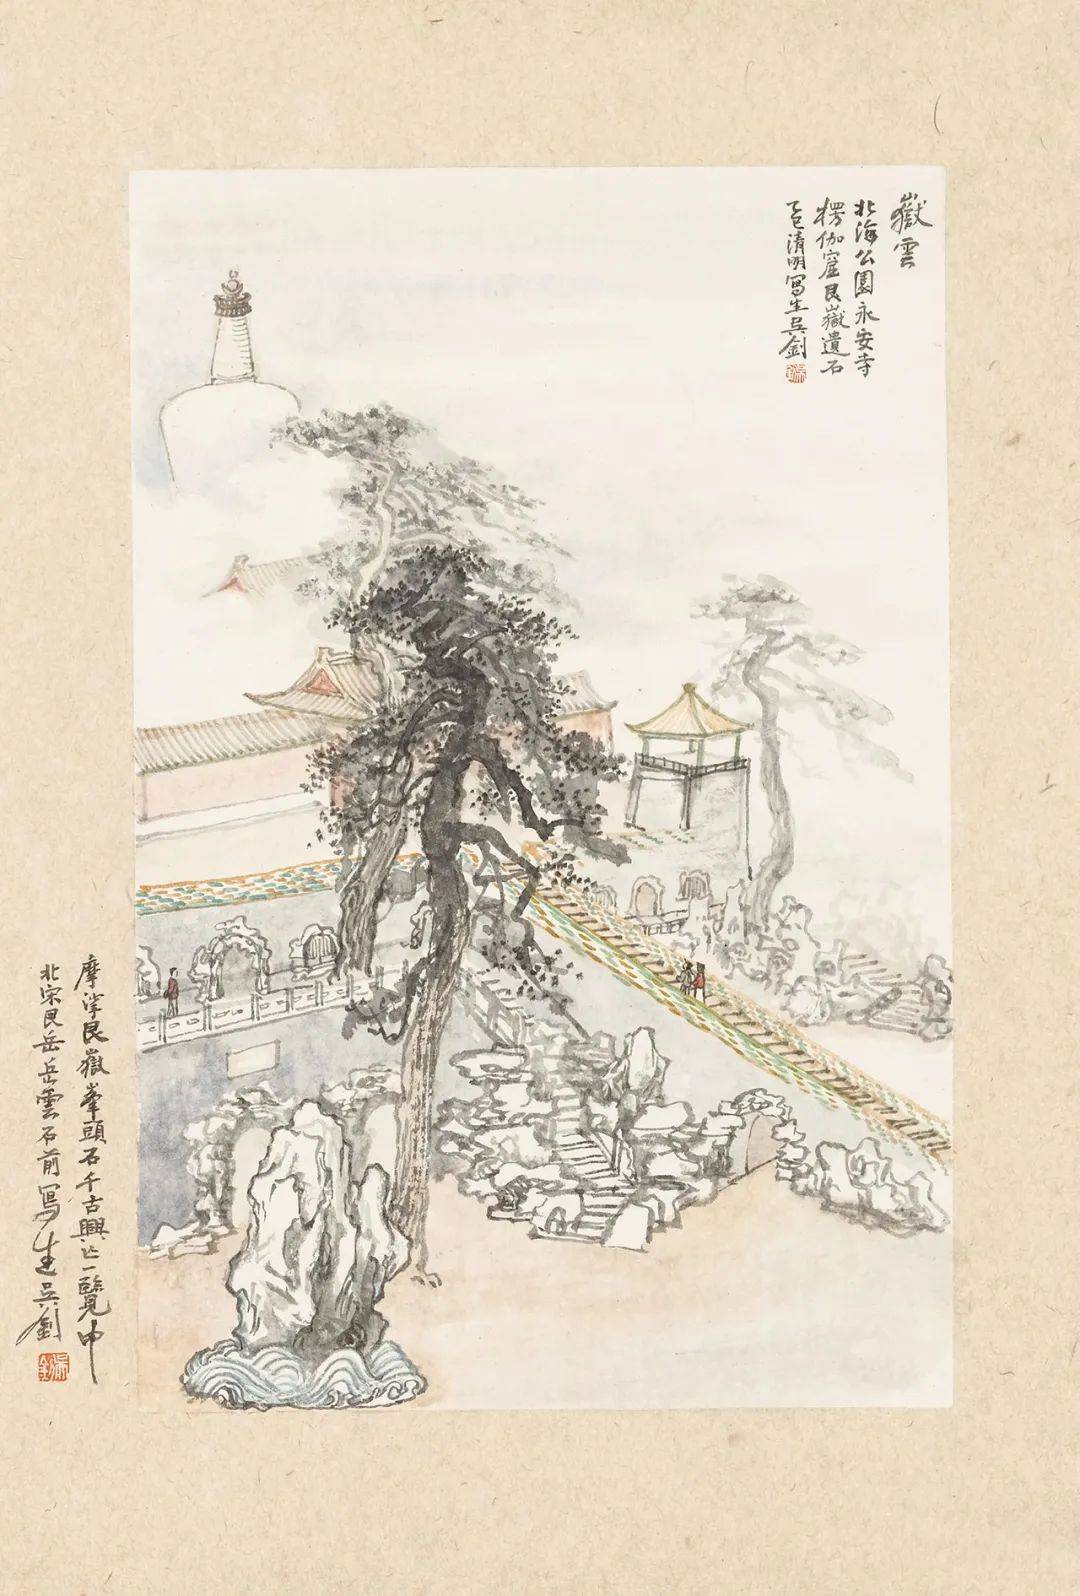 嶽雲
北海公園永安寺
楞伽窟艮嶽遺石
乙巳清明寫生吳劍
摩挲艮嶽峯頭石千古興亡一覽中
北宋艮岳岳雲石前寫生吳劍